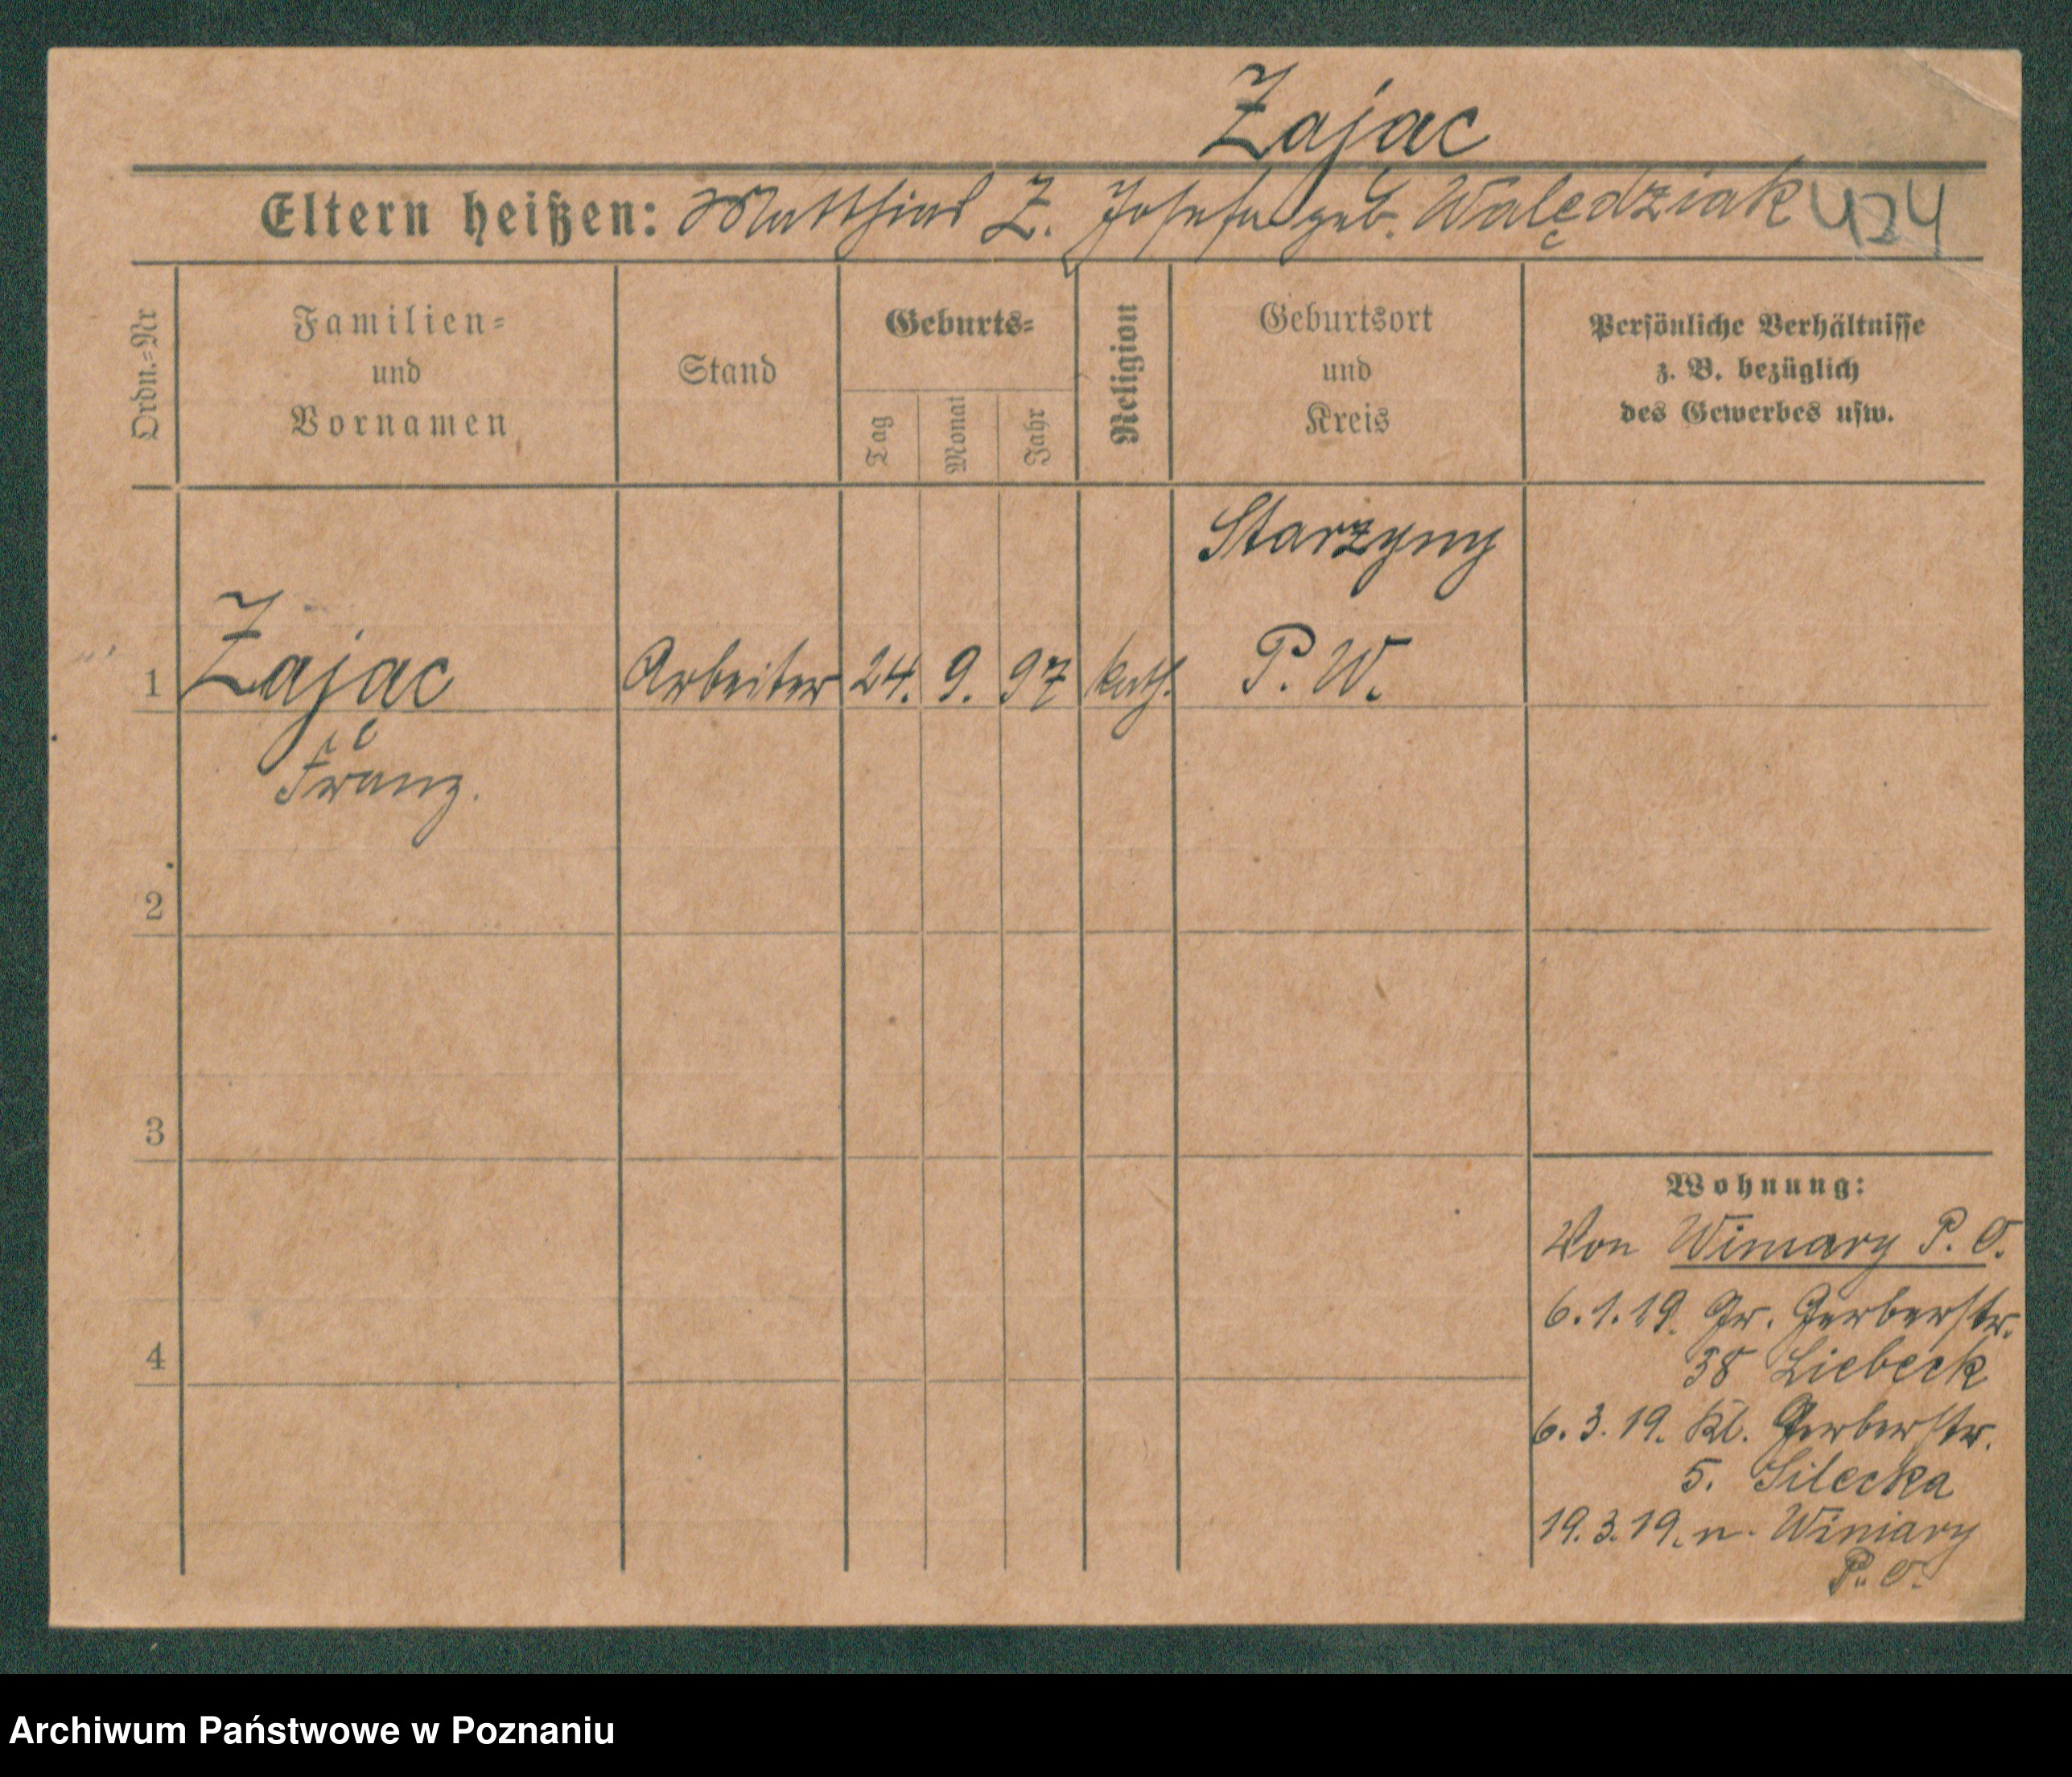 Zając
Eltern heißen: Matthias Z. Josefa geb. Walędziak 424
Ordn.=Nr
Familien=
und
Vornamen
Stand
Geburts=
Tag
Monat
Jahr
Religion
Geburtsort
und
Kreis
Persönliche Verhältnisse
z. B. bezüglich
des Gewerbes usw.
Starzyny
1 Zając Arbeiter 24. 9. 97 kath. P. W.
Franz.
2
3
4
Wohnung:
Von Winiary P. O.
6.1.19. Gr. Gerberstr.
38 Liebeck
6.3.19. Kl. Gerberstr.
5. Silecka
19.3.19. n. Winiary
P. O.
Archiwum Państwowe w Poznaniu